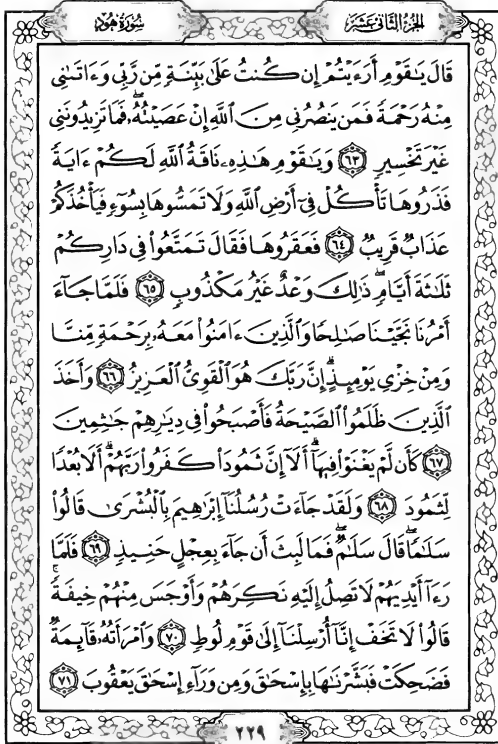 الجزء الثاني عشر
سورة هود
قَالَ يَٰقَوْمِ أَرَءَيْتُمْ إِن كُنتُ عَلَىٰ بَيِّنَةٍ مِّن رَّبِّي وَءَاتَىٰنِي
مِنْهُ رَحْمَةً فَمَن يَنصُرُنِي مِنَ ٱللَّهِ إِنْ عَصَيْتُهُۥ ۖ فَمَا تَزِيدُونَنِي
غَيْرَ تَخْسِيرٍ ٦٣ وَيَٰقَوْمِ هَٰذِهِۦ نَاقَةُ ٱللَّهِ لَكُمْ ءَايَةً
فَذَرُوهَا تَأْكُلْ فِيٓ أَرْضِ ٱللَّهِ وَلَا تَمَسُّوهَا بِسُوٓءٍ فَيَأْخُذَكُمْ
عَذَابٌ قَرِيبٌ ٦٤ فَعَقَرُوهَا فَقَالَ تَمَتَّعُوا۟ فِي دَارِكُمْ
ثَلَٰثَةَ أَيَّامٍ ۖ ذَٰلِكَ وَعْدٌ غَيْرُ مَكْذُوبٍ ٦٥ فَلَمَّا جَآءَ
أَمْرُنَا نَجَّيْنَا صَٰلِحًا وَٱلَّذِينَ ءَامَنُوا۟ مَعَهُۥ بِرَحْمَةٍ مِّنَّا
وَمِنْ خِزْيِ يَوْمِئِذٍ ۗ إِنَّ رَبَّكَ هُوَ ٱلْقَوِيُّ ٱلْعَزِيزُ ٦٦ وَأَخَذَ
ٱلَّذِينَ ظَلَمُوا۟ ٱلصَّيْحَةُ فَأَصْبَحُوا۟ فِي دِيَٰرِهِمْ جَٰثِمِينَ
٦٧ كَأَن لَّمْ يَغْنَوْا۟ فِيهَآ ۗ أَلَآ إِنَّ ثَمُودَا۟ كَفَرُوا۟ رَبَّهُمْ ۗ أَلَا بُعْدًا
لِّثَمُودَ ٦٨ وَلَقَدْ جَآءَتْ رُسُلُنَآ إِبْرَٰهِيمَ بِٱلْبُشْرَىٰ قَالُوا۟
سَلَٰمًا ۖ قَالَ سَلَٰمٌ ۖ فَمَا لَبِثَ أَن جَآءَ بِعِجْلٍ حَنِيذٍ ٦٩ فَلَمَّا
رَءَآ أَيْدِيَهُمْ لَا تَصِلُ إِلَيْهِ نَكِرَهُمْ وَأَوْجَسَ مِنْهُمْ خِيفَةً ۚ
قَالُوا۟ لَا تَخَفْ إِنَّآ أُرْسِلْنَآ إِلَىٰ قَوْمِ لُوطٍ ٧٠ وَٱمْرَأَتُهُۥ قَآئِمَةٌ
فَضَحِكَتْ فَبَشَّرْنَٰهَا بِإِسْحَٰقَ وَمِن وَرَآءِ إِسْحَٰقَ يَعْقُوبَ ٧١
٢٢٩